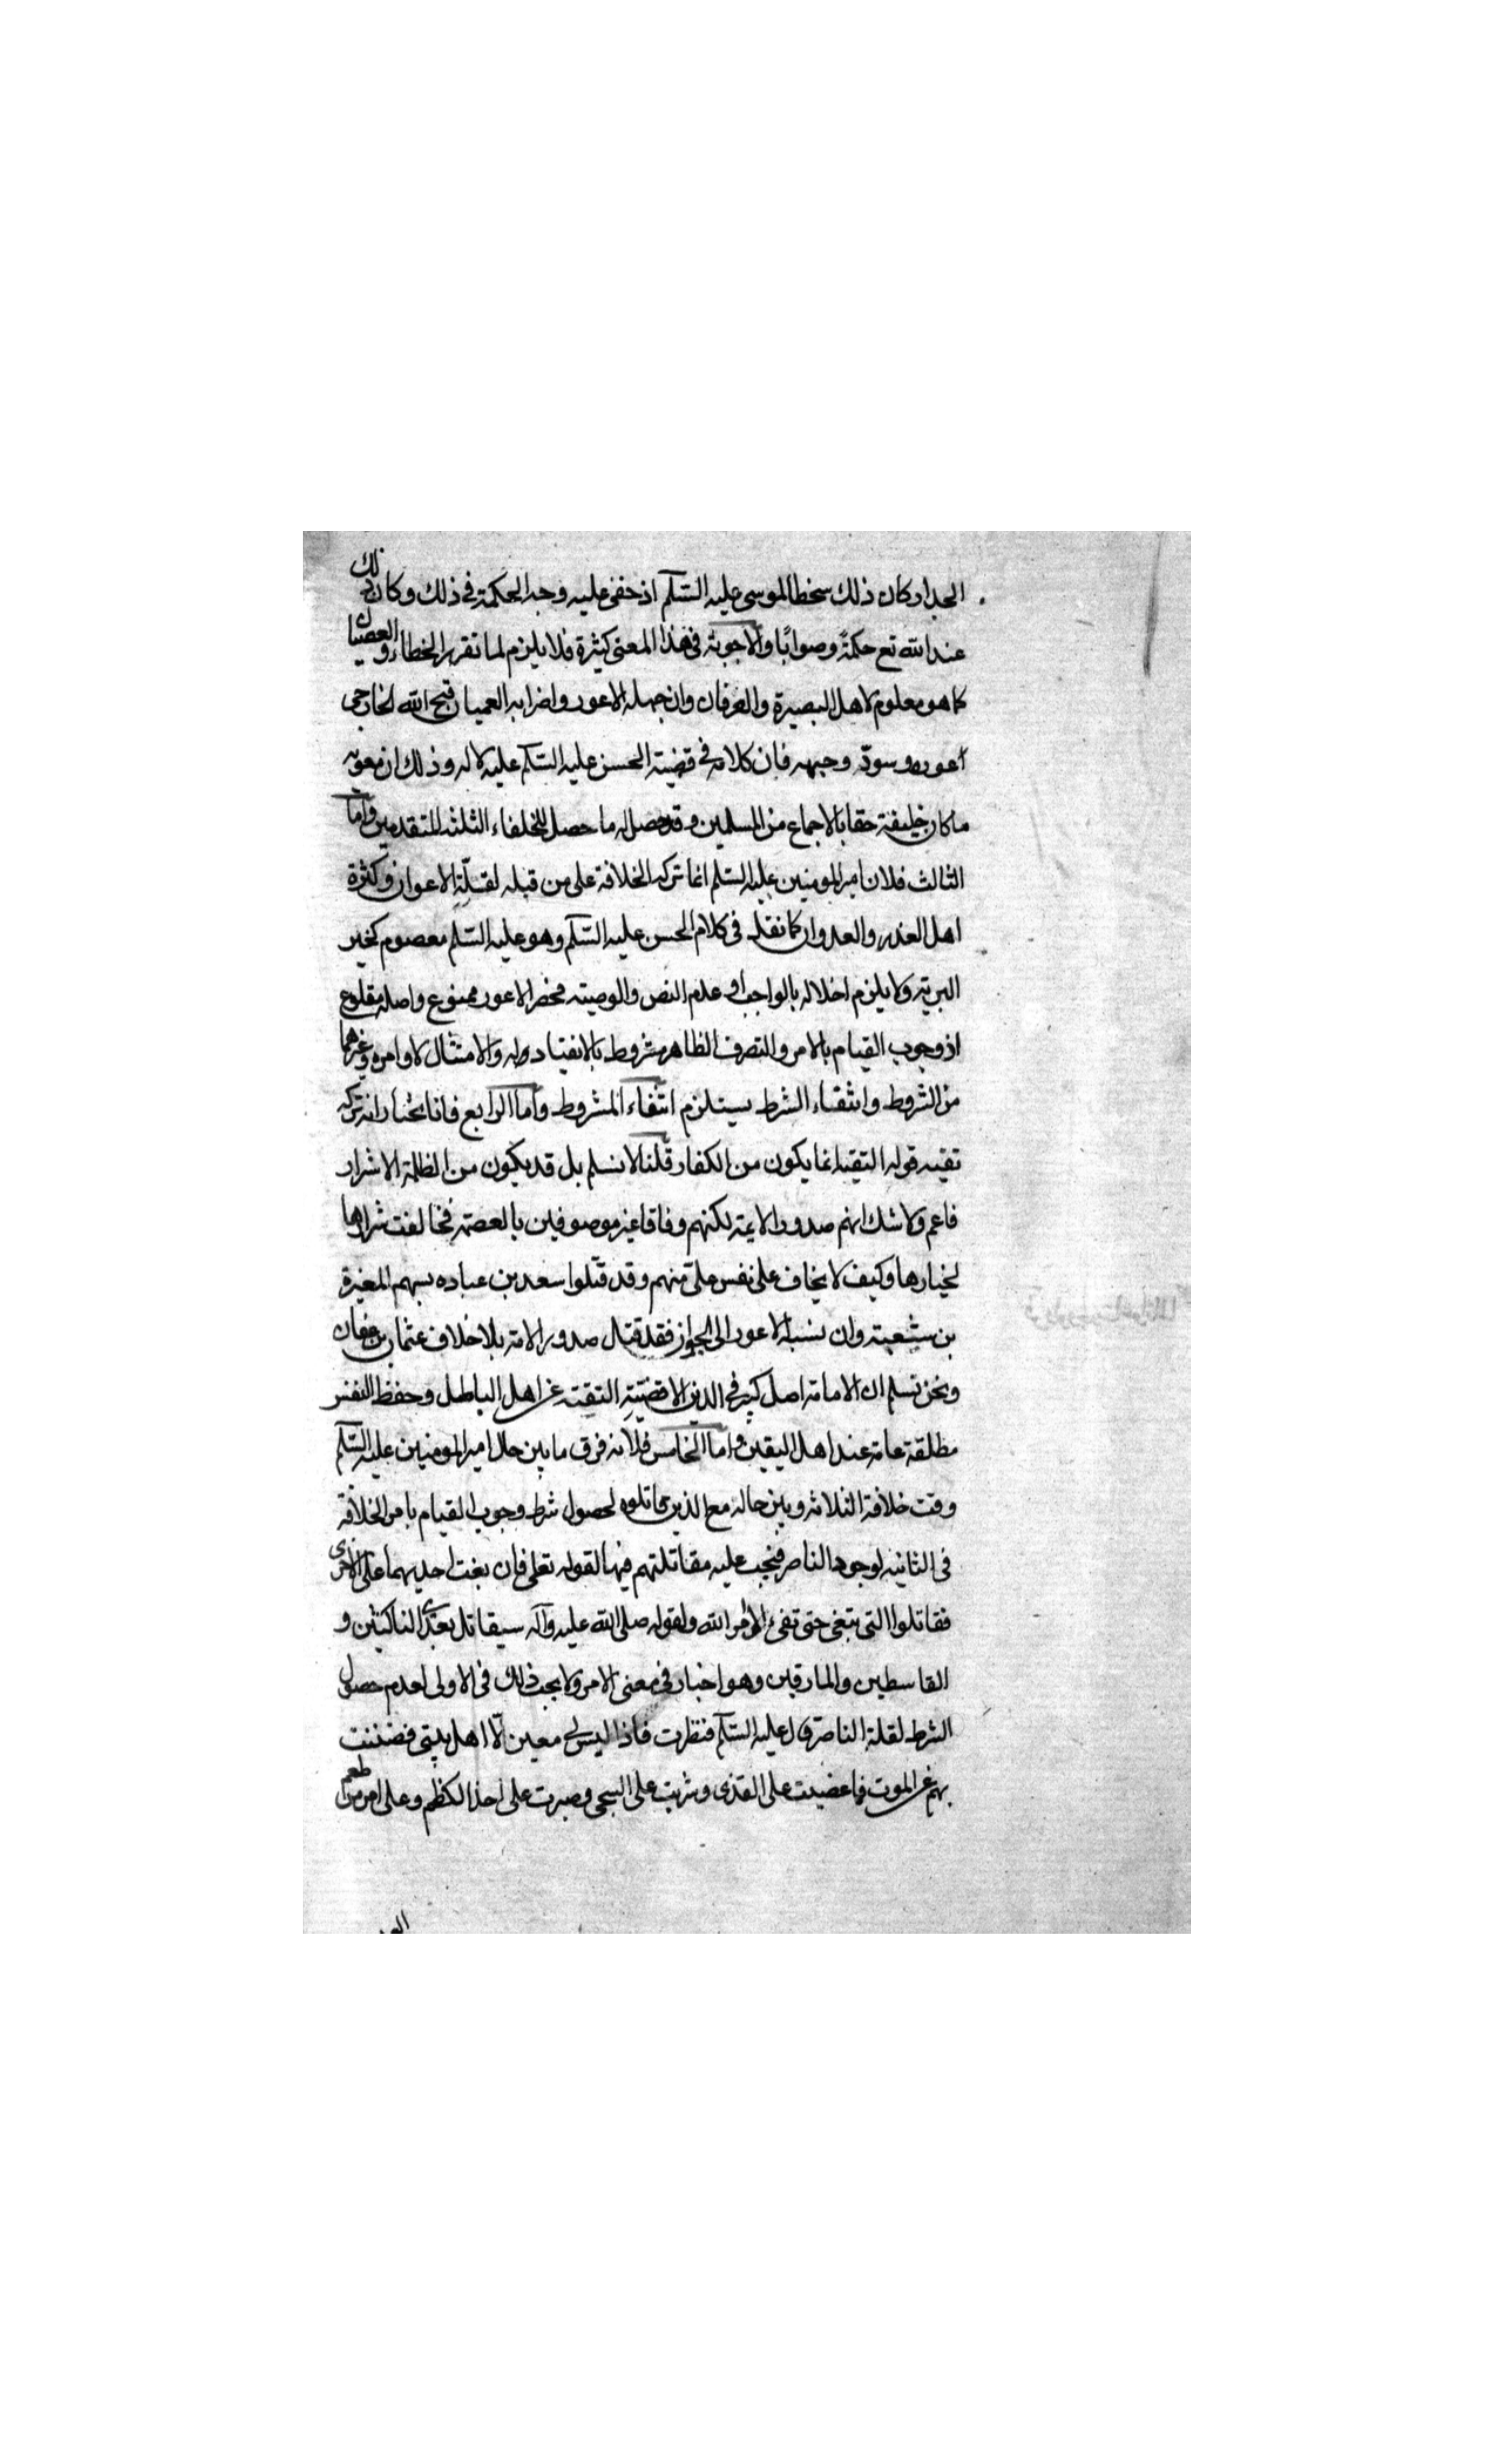 الجدار وكان ذلك سخطا لموسى عليه السّلم اذ خفى عليه وجه الحكمة فى ذلك وكان ذلك
عند الله تع حكمةً وصوابًا والاجوبة فى هذا المعنى كثيرة فلا يلزم لما تقرر الخطاء والعصيان
كما هو معلوم لاهل البصيرة والعرفان وان جهله الاعور واضرابه العميان قبح الله الخارجى
اعوره وسودّ وجهه فان كلامه فى قضية الحسن عليه السّلم عليه لا له وذلك ان معويه
ما كان خليفة حقا بالاجماع من المسلمين وقد حصل له ما حصل للخلفاء الثلثه المتقدمين واما
الثالث فلان امير المومنين عليه السلم انما ترك الخلافة على من قبله لقلّة الاعوان وكثرة
اهل الغدر والعدوان كما نقل فى كلام الحسن عليه السّلم وهو عليه السّلم معصوم كخير
البرية ولا يلزم اخلاله بالواجب او عدم النص والوصية فحصر الاعور ممنوع واصله مقلوع
اذ وجوب القيام بالامر والتصرف الظاهر مشروط بالانقياد له والامتثال لاوامره وغيرهما
من الشروط وانتفاء الشرط يستلزم انتفاء المشروط واما الرابع فانا نختار انه تركه
تقيه قوله التقية انما يكون من الكفار قلنا لا نسلم بل قد يكون من الظلمة الاشرار
فاعم ولا شك انهم صدور الايمة لكنهم وفاقا غير موصوفين بالعصمة فخالفت شرارها
لخيارها وكيف لا يخاف على نفس على منهم وقد قتلوا سعد بن عباده بسهم المغيرة
بن شعبة وان نسبه الاعور الى الجواز فقد قتل صدور الامة بلا خلاف عثمان بن عفان
ونحن نسلم ان الامامة اصل كبير فى الدين الا قضيّة التقية عن اهل الباطل وحفظ النفس
مطلقة عامة عند اهل اليقين واما الخامس فلانه فرق ما بين حال امير المومنين عليه السّلم
وقت خلافة الثلاثه وبين حاله مع الذين قاتلوه لحصول شرط وجوب القيام بامر الخلافة
فى الثانيه لوجود الناصر فيجب عليه مقاتلتهم فيها لقوله تعلى فان بغت احديهما على الاخرى
فقاتلوا التى تبغى حتى تفىء الى امر الله ولقوله صلى الله عليه وآله سيقاتل بعدى الناكثين و
القاسطين والمارقين وهو اخبار فى معنى الامر ولا يجب ذلك فى الاولى لعدم حصول
الشرط لقلة الناصر قال عليه السّلم فنظرت فاذا ليس لى معين الّا اهل بيتى فضننت
بهم عن الموت فاغضيت على القذى وشربت على الشجى وصبرت على اخذ الكظم وعلى امر من طعم